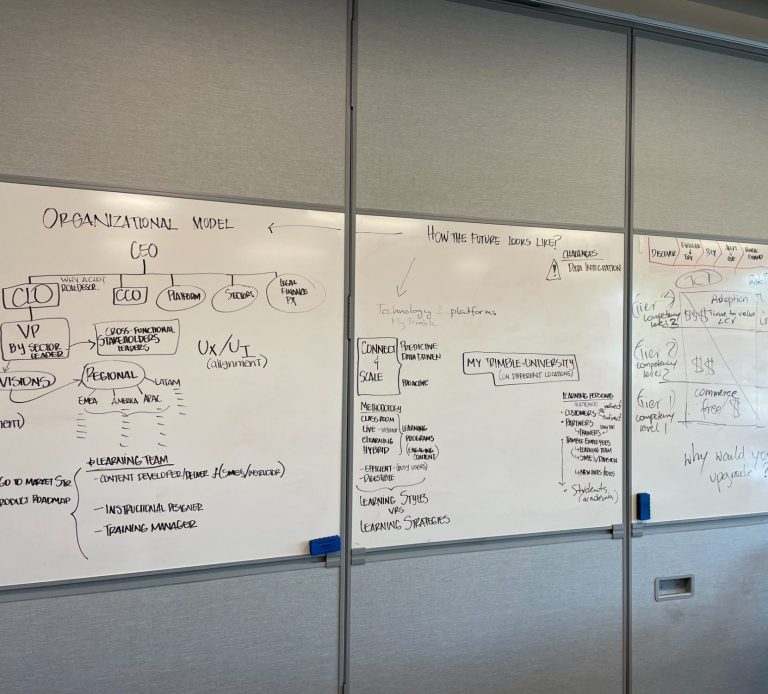 ORGANIZATIONAL MODEL
CEO
WHY A CLO?
ROLE/DESCR.
CLO
CCO
PLATFORM
SECTORS
LEGAL
FINANCE
VP
BY SECTOR
LEADER
CROSS-FUNCTIONAL
STAKEHOLDERS
LEADERS
UX/UI
(alignment)
VISIONS
REGIONAL
EMEA
AMERIKA
APAC
LATAM
GO TO MARKET STR.
PRODUCT ROADMAP
LEARNING TEAM
- CONTENT DEVELOPER/DELIVER
- INSTRUCTIONAL DESIGNER
- TRAINING MANAGER
HOW THE FUTURE LOOKS LIKE?
CHALLENGES
DATA INTEGRATION
Technology 2 platforms
My Trimble
CONNECT
&
SCALE
PREDICTIVE
DATA DRIVEN
PROACTIVE
MY TRIMBLE-UNIVERSITY
(IN DIFFERENT LOCATIONS)
METHODOLOGY
CLASSROOM
LIVE -
ELEARNING
HYBRID
LEARNING
PROGRAMS
(ENGAGING
CONTENT)
- EFFICIENT - (BUSY USERS)
- DIGESTIBLE
LEARNING STYLES
VRS
LEARNING STRATEGIES
LEARNING PERSONAS
AUDIENCE
- CUSTOMERS
- PARTNERS
TRIMBLE EMPLOYEES
LEARNING TEAM
- Students
(academia)
DISCOVER
EVALUATE
&
TRY
BUY
ADOPT
&
USE
Tier 3
competency
level 3
$$$
Adoption
Time to value
LCV
Tier 2
competency
level 2
$$
Tier 1
competency
level 1
commerce
free $
why would you
upgrade?